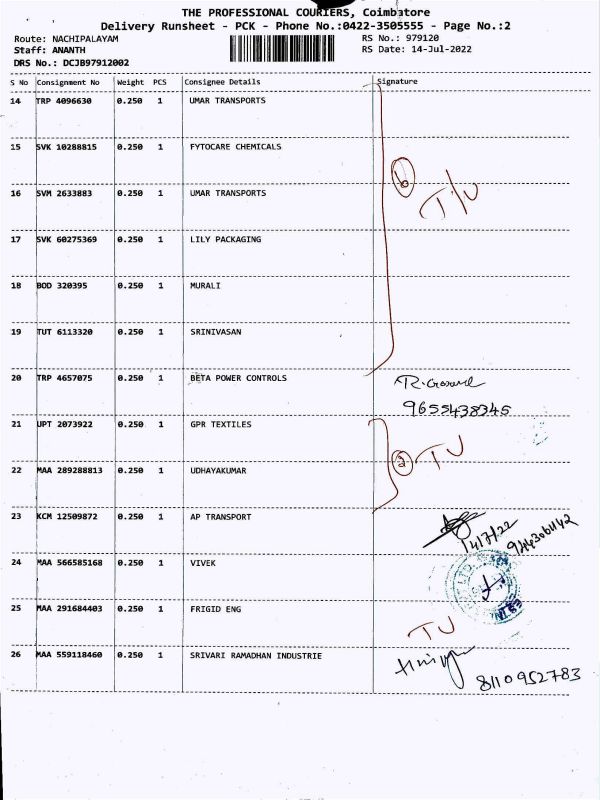 THE PROFESSIONAL COURIERS, Coimbatore
Delivery Runsheet - PCK - Phone No.:0422-3505555 - Page No.:2
Route: NACHIPALAYAM RS No.: 979120
Staff: ANANTH RS Date: 14-Jul-2022
DRS No.: DCJB97912002
S No Consignment No Weight PCS Consignee Details Signature
14 TRP 4096630 0.250 1 UMAR TRANSPORTS
15 SVK 10288815 0.250 1 FYTOCARE CHEMICALS
6 T/U
16 SVM 2633883 0.250 1 UMAR TRANSPORTS
17 SVK 60275369 0.250 1 LILY PACKAGING
18 BOD 320395 0.250 1 MURALI
19 TUT 6113320 0.250 1 SRINIVASAN
20 TRP 4657075 0.250 1 BETA POWER CONTROLS
9655438345
21 UPT 2073922 0.250 1 GPR TEXTILES
2 TU
22 MAA 289288813 0.250 1 UDHAYAKUMAR
23 KCM 12509872 0.250 1 AP TRANSPORT
14/7/22
24 MAA 566585168 0.250 1 VIVEK
25 MAA 291684403 0.250 1 FRIGID ENG
TU
26 MAA 559118460 0.250 1 SRIVARI RAMADHAN INDUSTRIE
8110952783